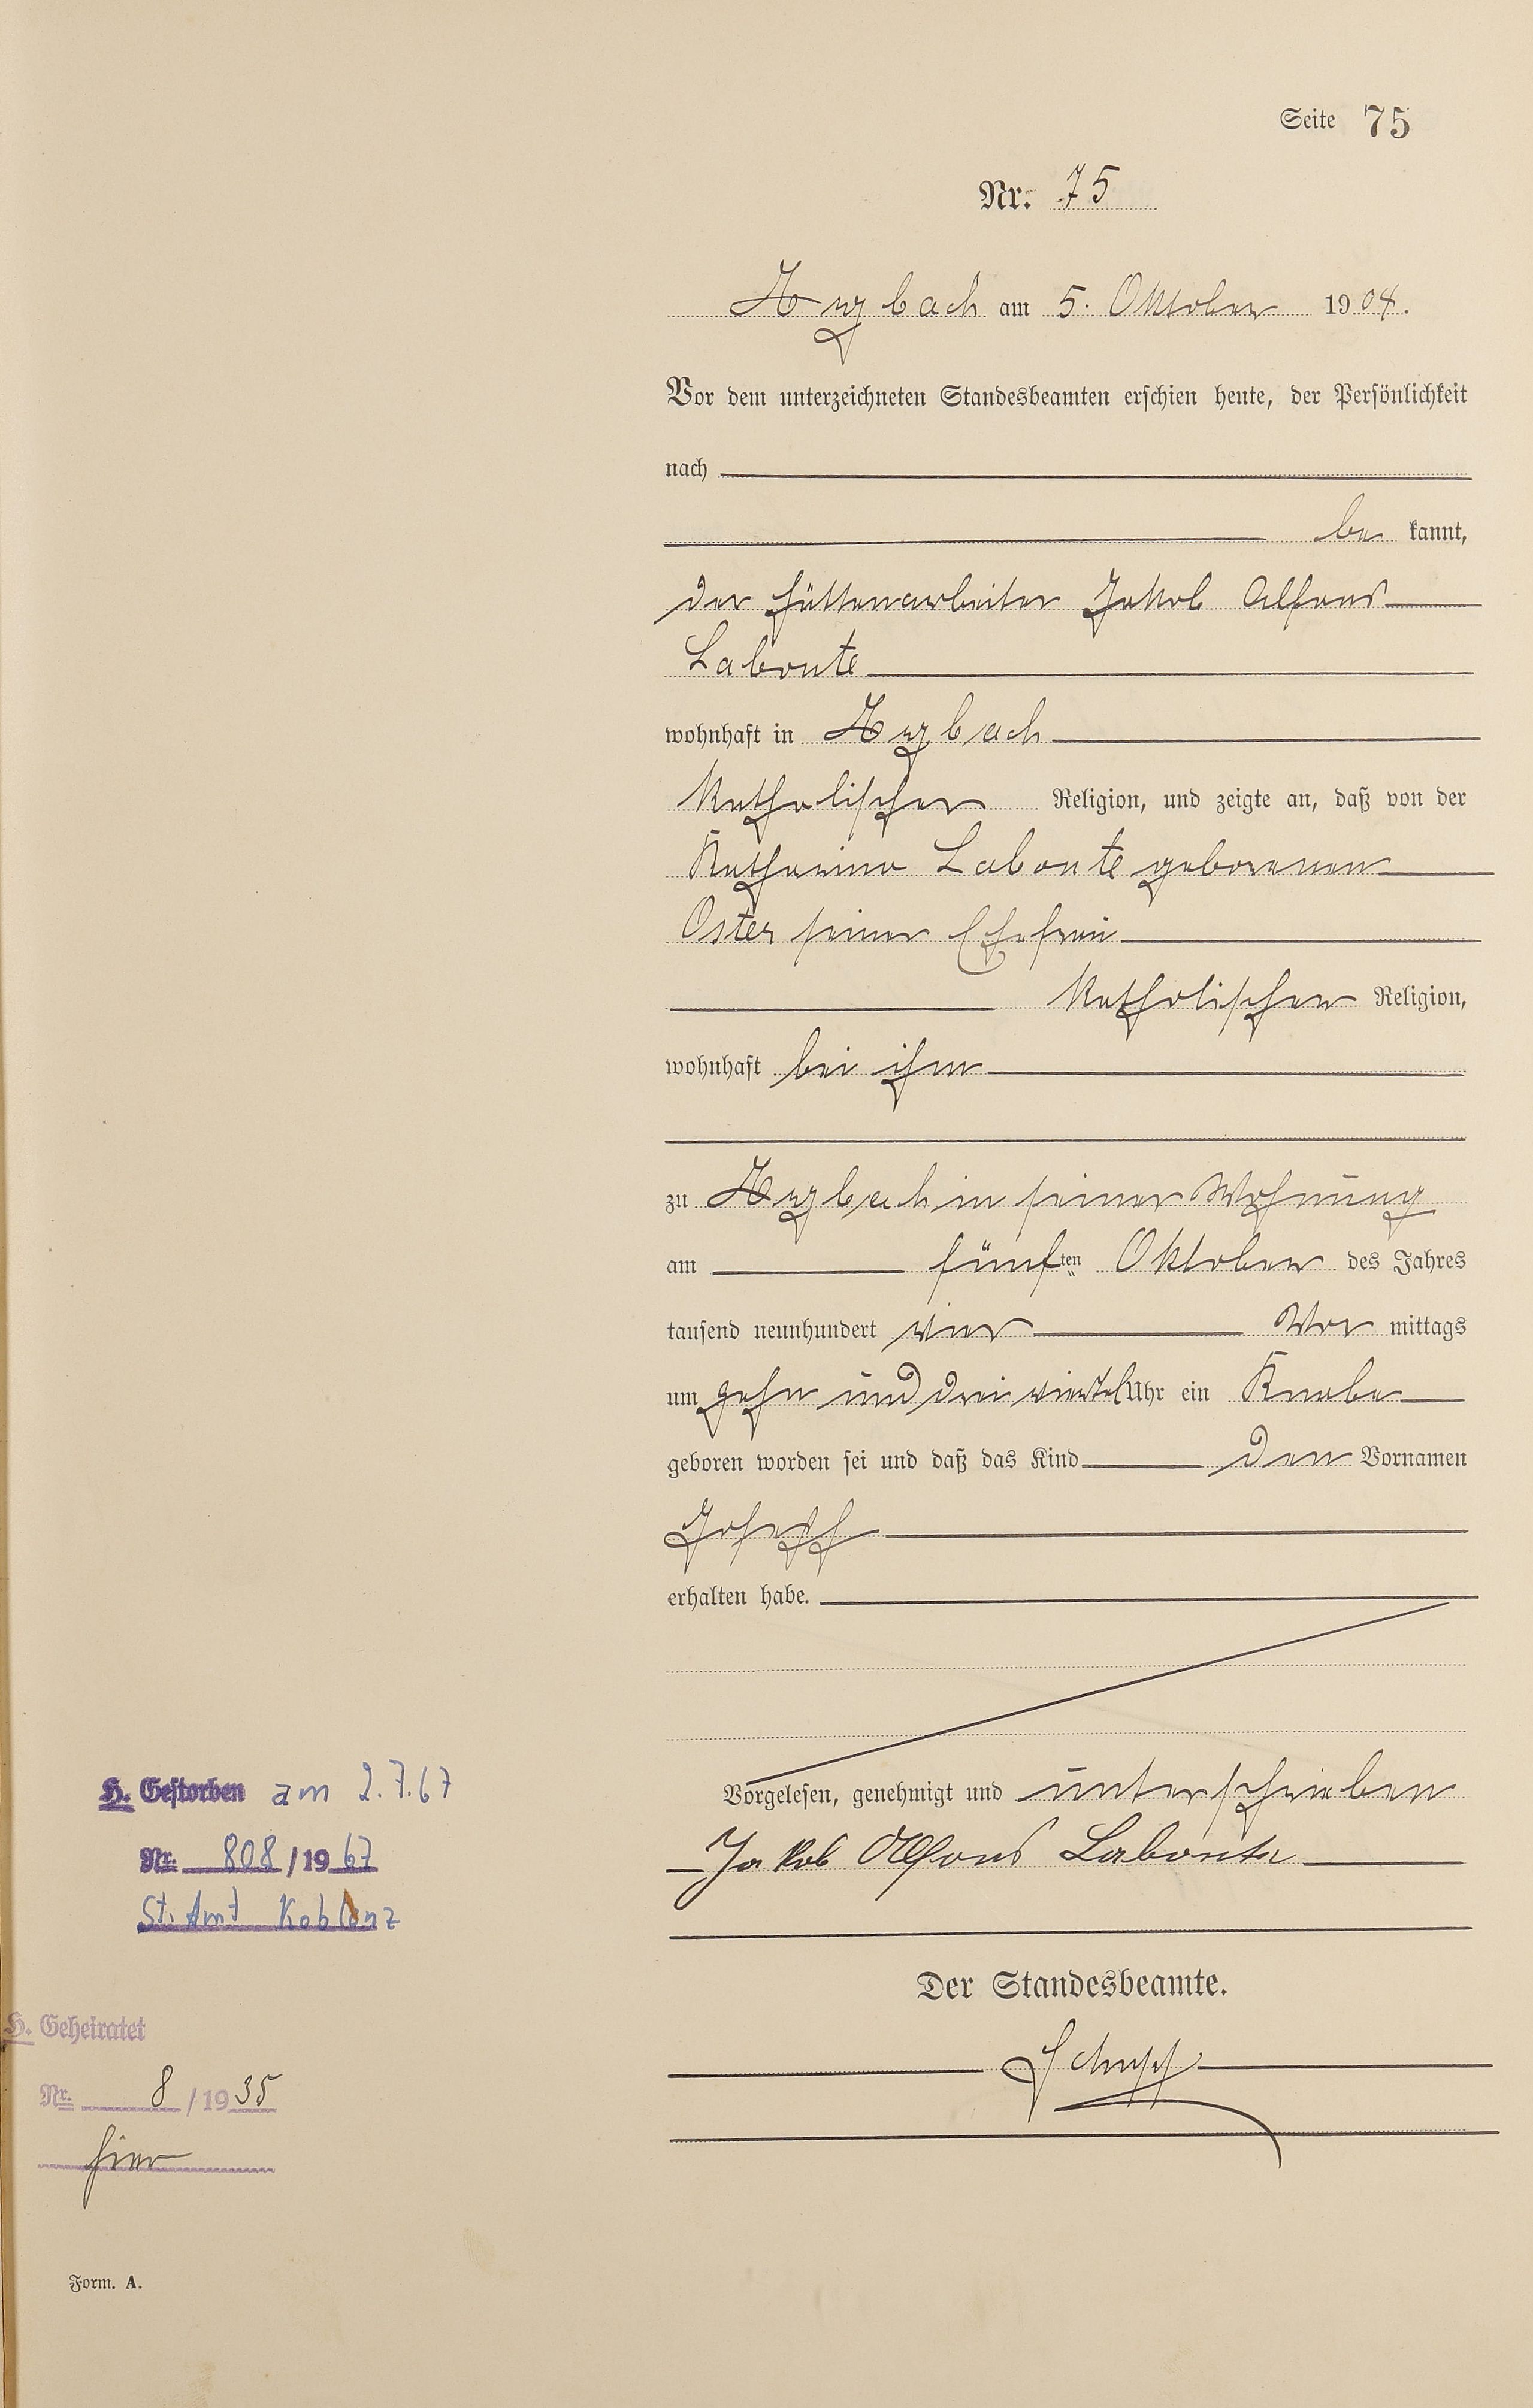 Seite 75
Nr. 75
Arzbach am 5. Oktober 1904.
Vor dem unterzeichneten Standesbeamten erschien heute, der Persönlichkeit
nach
be kannt,
der Hüttenarbeiter Jakob Alfons
Labonte
wohnhaft in Arzbach
katholischer Religion, und zeigte an, daß von der
Katharina Labonte geborenen
Oster seiner Ehefrau
katholischer Religion,
wohnhaft bei ihm
zu Arzbach in seiner Wohnung
am fünften Oktober des Jahres
tausend neunhundert vier Vor mittags
um zehn und drei viertel Uhr ein Knabe
geboren worden sei und daß das Kind den Vornamen
Joseph
erhalten habe.
Vorgelesen, genehmigt und unterschrieben
Jakob Alfons Labonte
Der Standesbeamte.
Schupp
H. Gestorben am 2.7.67
Nr. 808/1967
St. Amt Koblenz
H. Geheiratet
Nr. 8/1935
hier
Form. A.